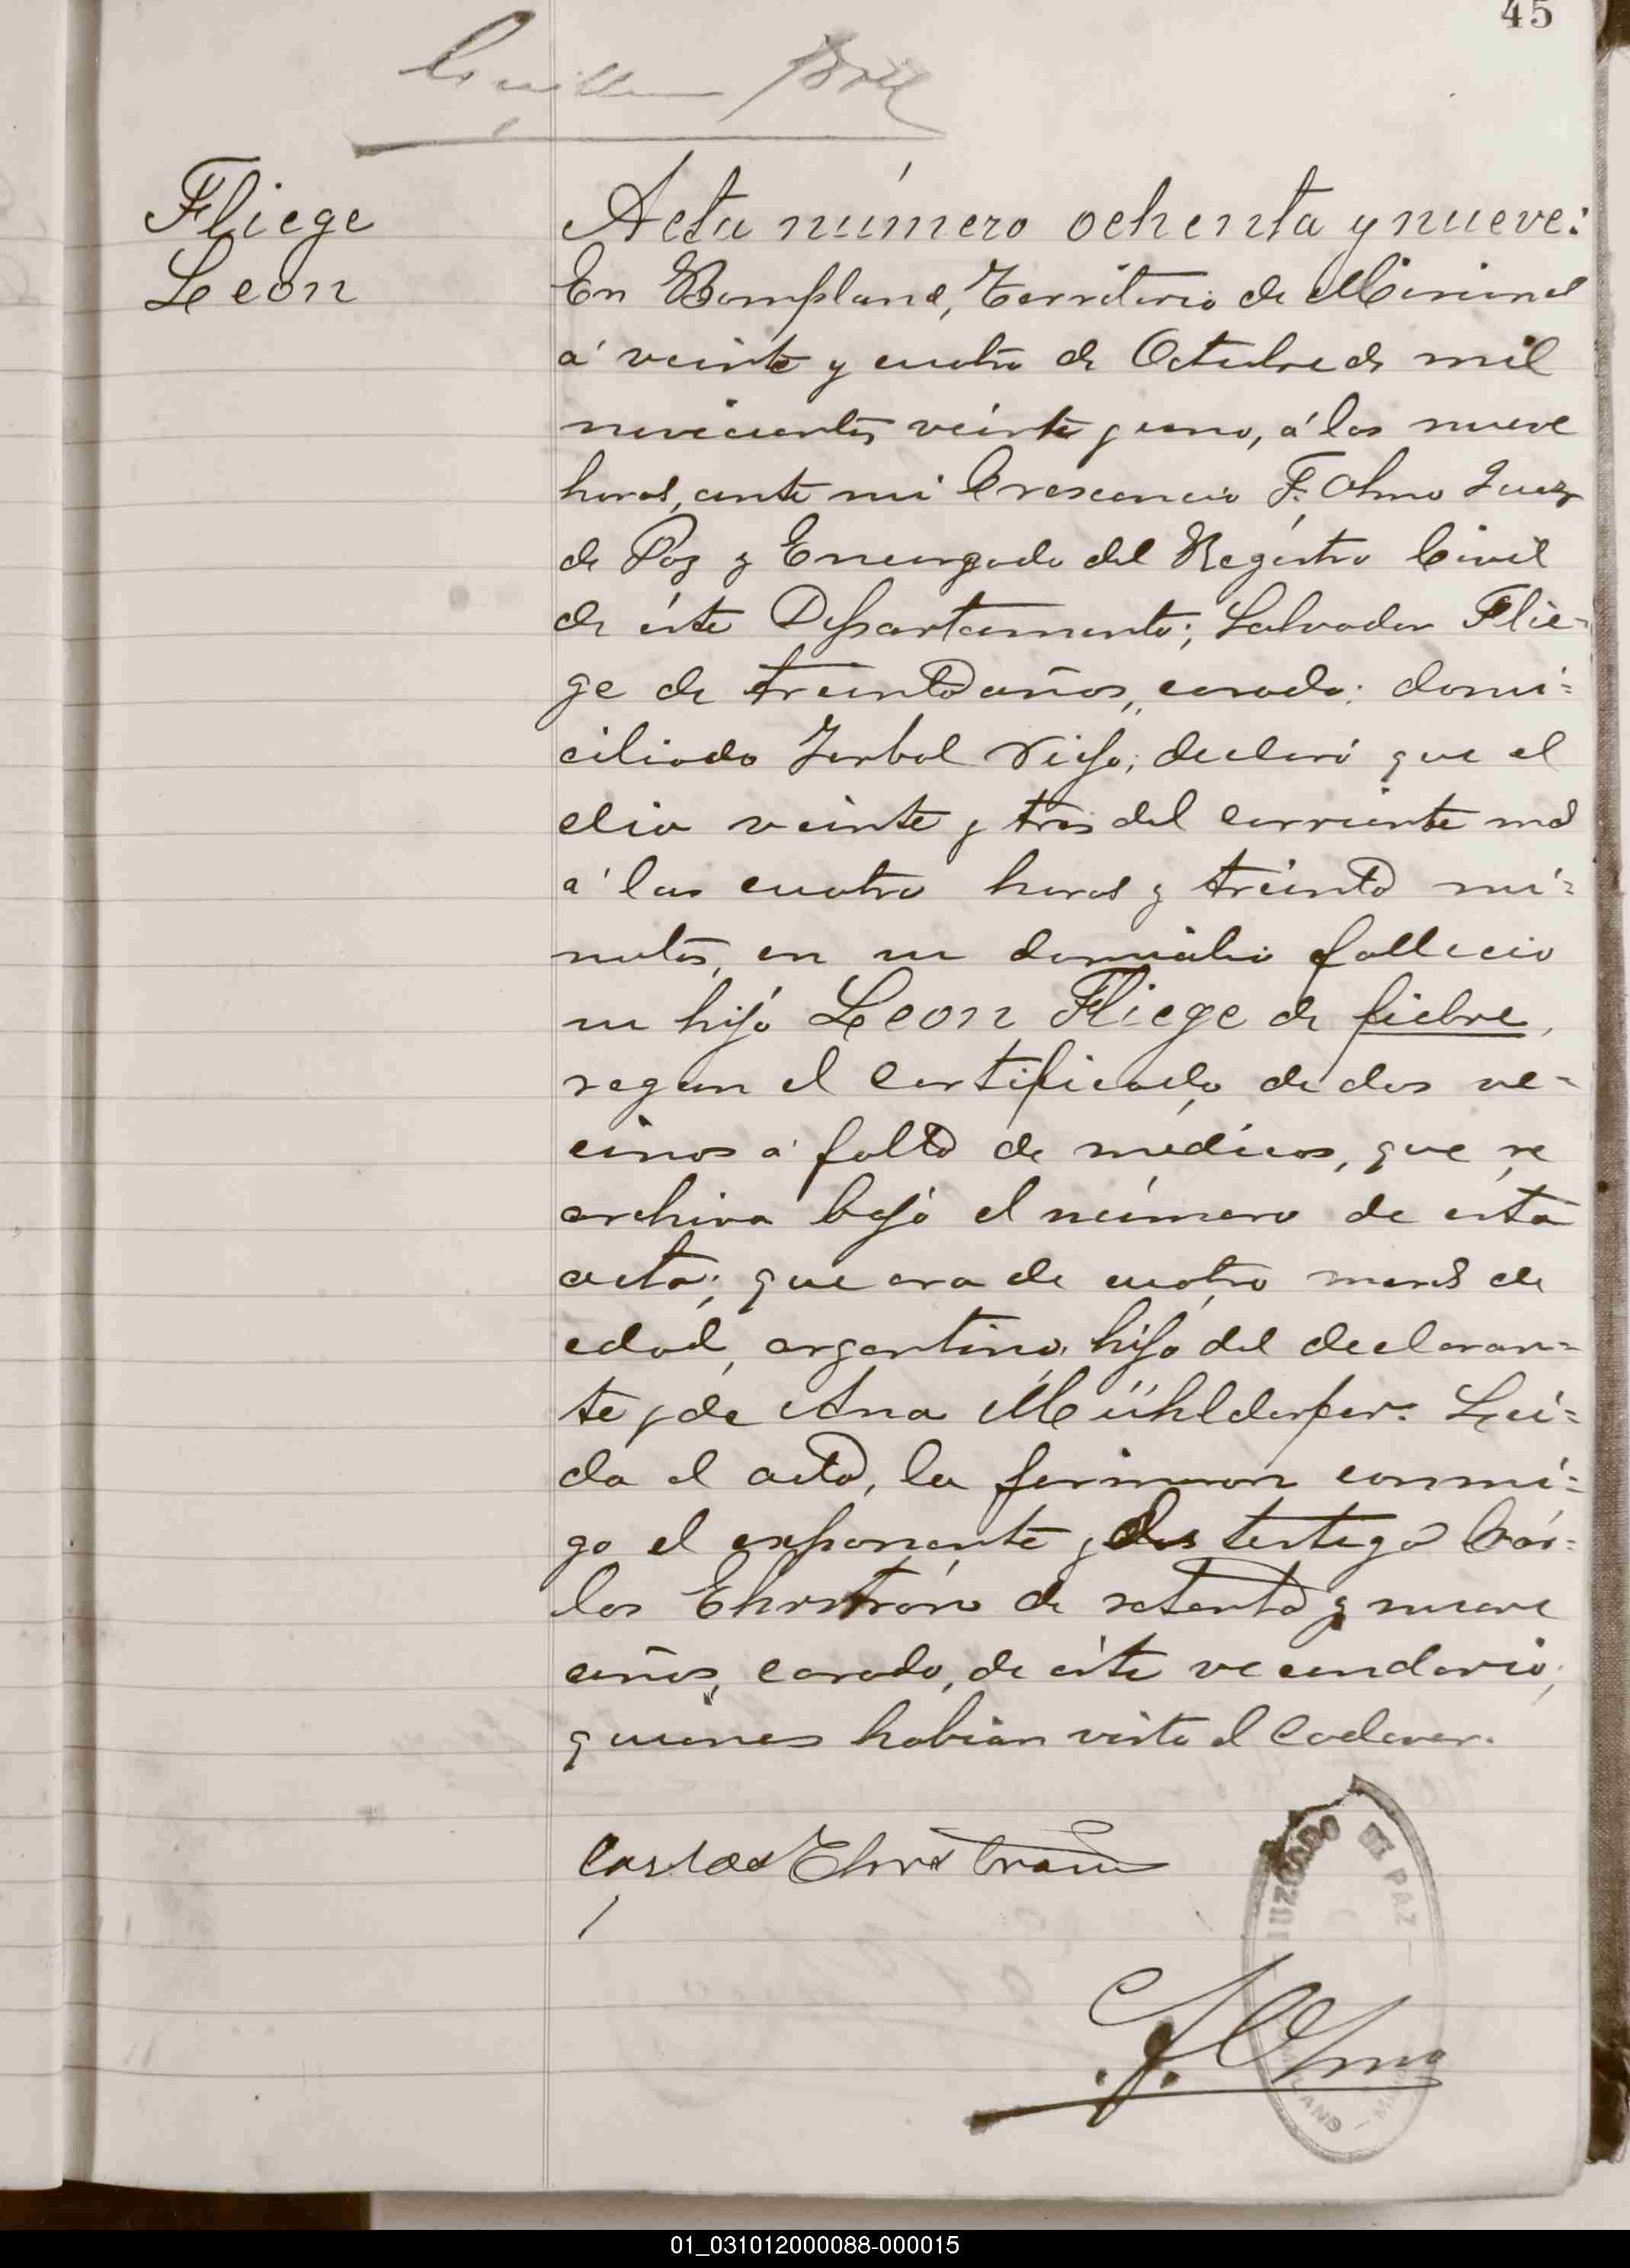 45
Fliege
Leon
Acta número ochenta y nueve:
En Bompland, Territorio de Misiones
á veinte y cuatro de Octubre de mil
novecientos veinte y uno, á las nueve
horas, ante mi Crescencio F. Olmo Juez
de Paz y Encargado del Registro Civil
de éste Departamento; Salvador Flie=
ge de treinta años, casado; domi=
ciliado Yerbal Viejo; declaró que el
dia veinte y tres del corriente mes
á las cuatro horas y treinta mi=
nutos, en su domicilio fallecio
su hijo Leon Fliege de fiebre,
segun el certificado de dos ve=
cinos á falta de médicos, que se
archiva bajo el número de ésta
acta; que era de cuatro meses de
edad, argentino, hijo del declaran=
te y de Ana Mühldorfer. Lei=
da el acta, la firmaron conmi=
go el exponente y dos testigos Cár=
los Ehrström de setenta y nueve
años, casado, de éste vecindario,
quienes habian visto el cadaver.
Carlos Ehrström
JUZGADO DE PAZ
C. F. Olmo
01_031012000088-000015